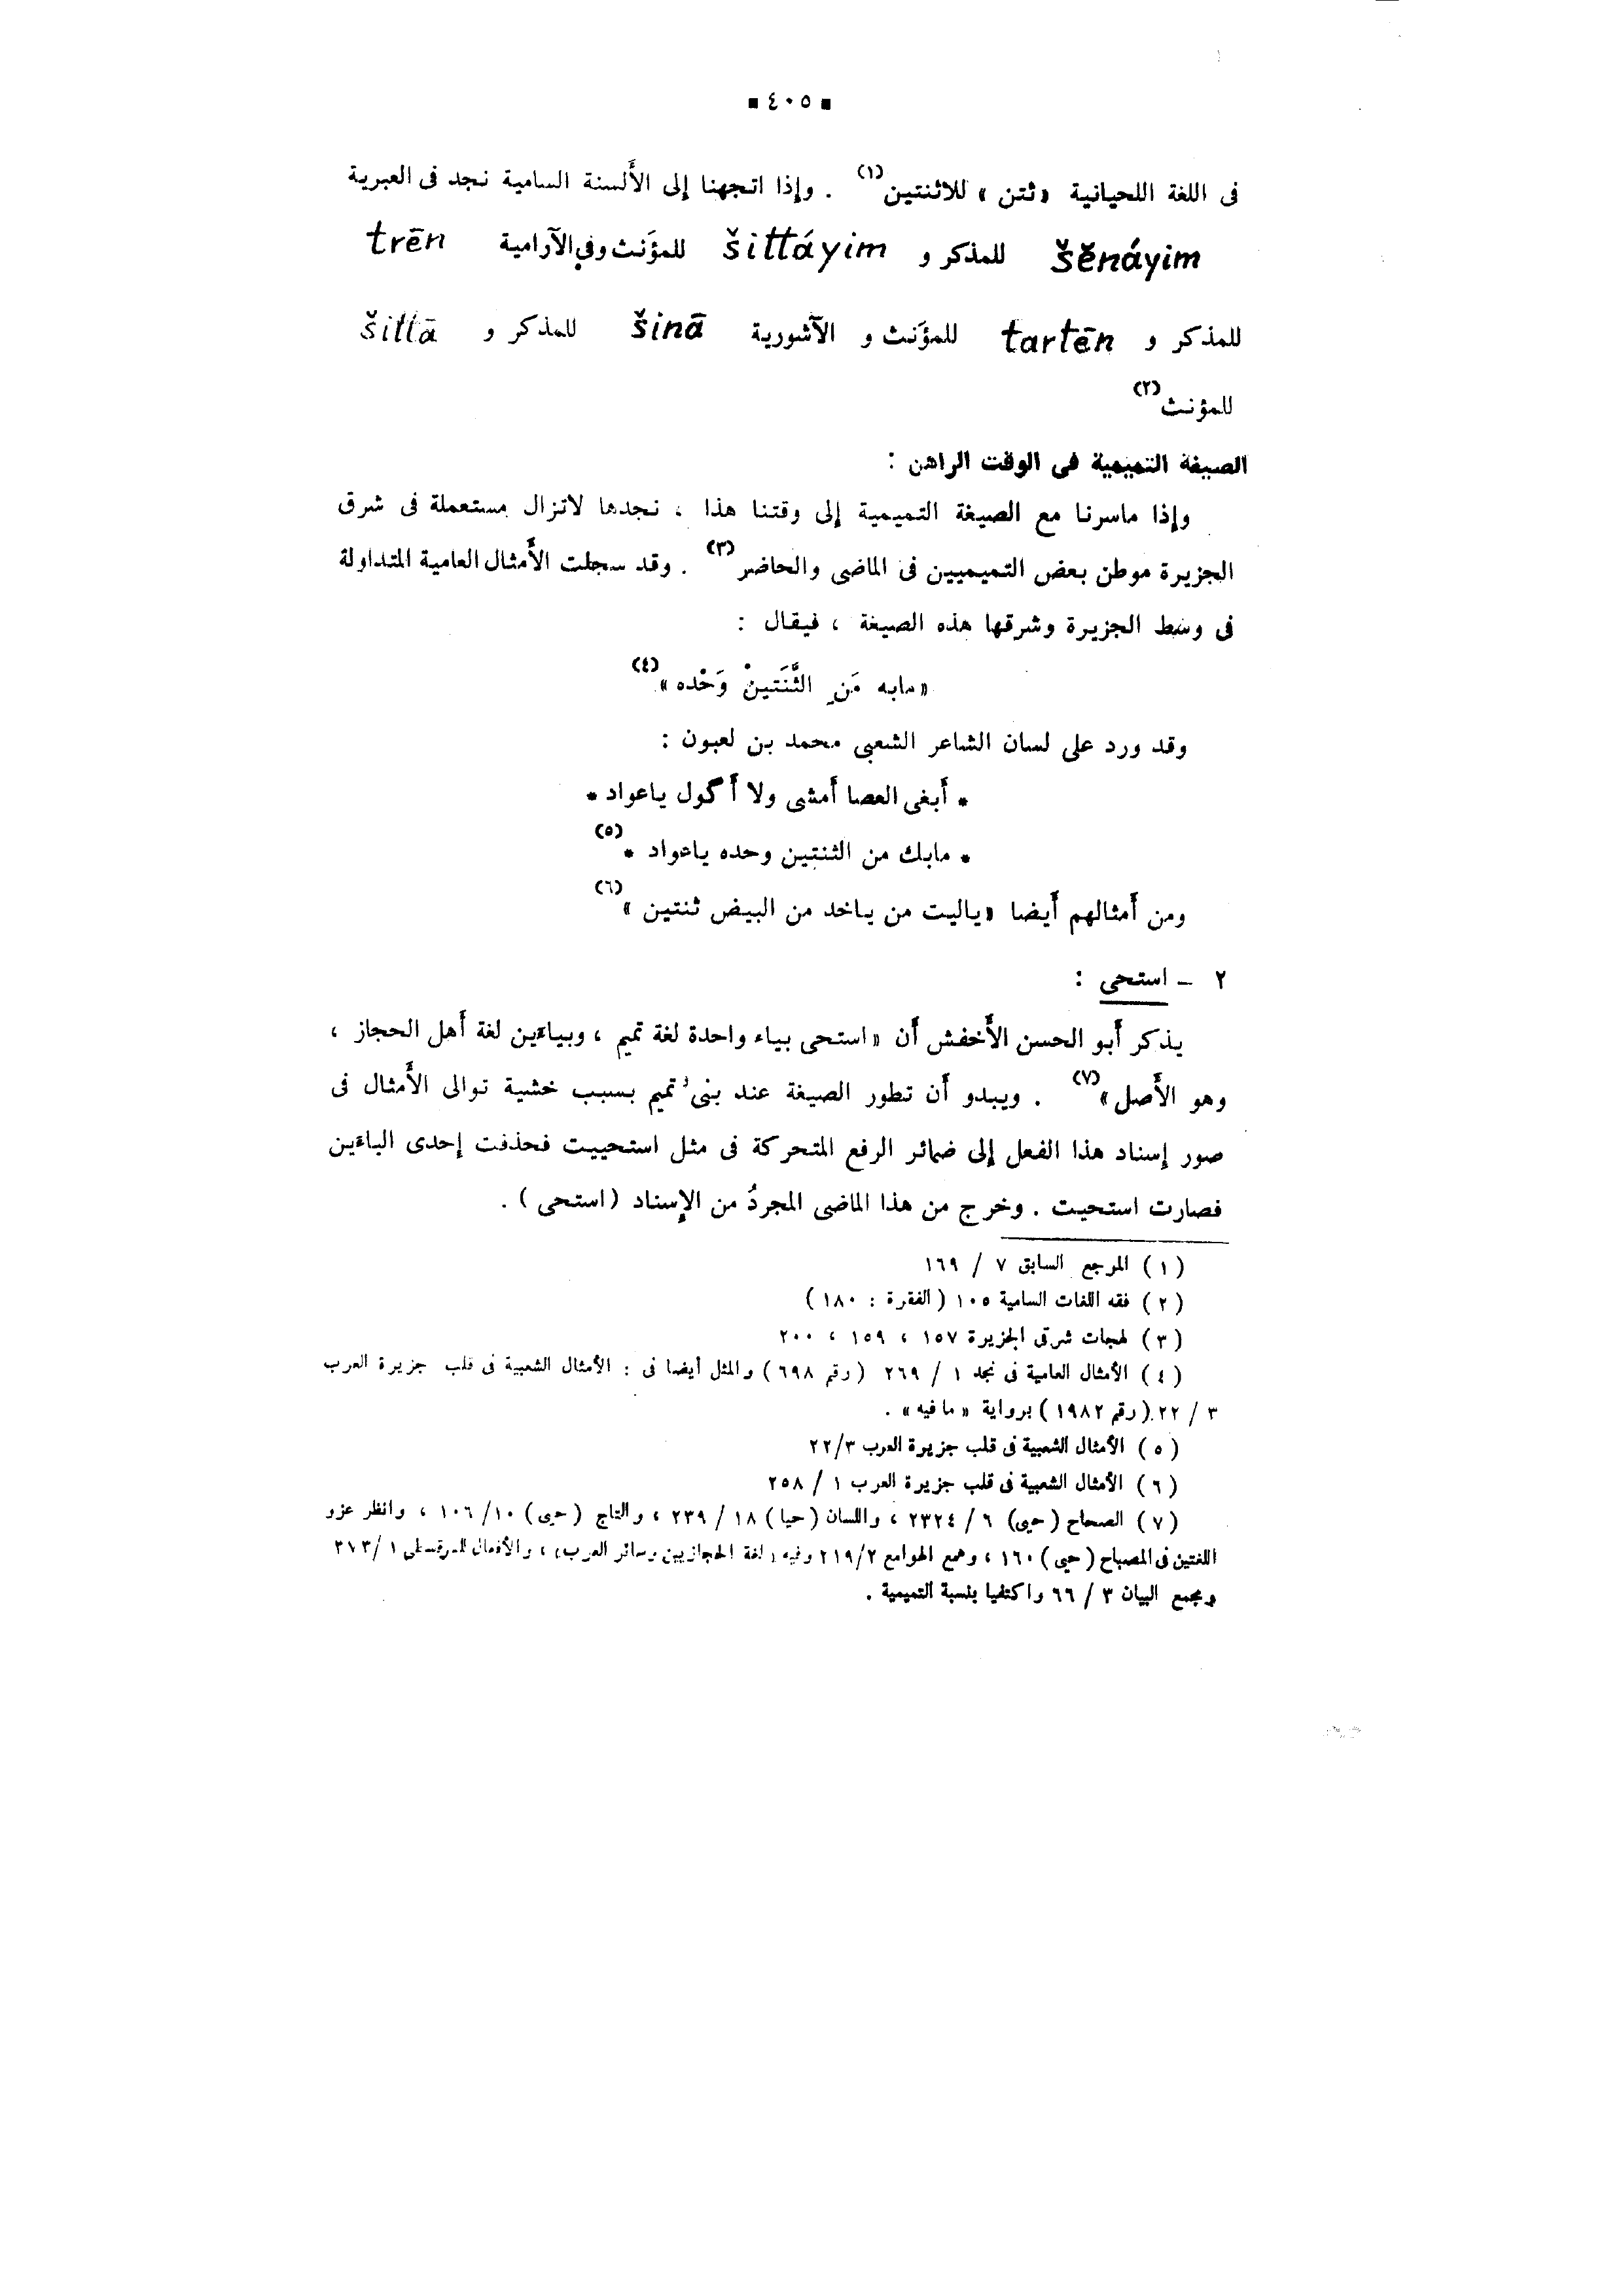 ▪ ٤٠٥ ▪
فى اللغة اللحيانية «ثتن» للاثنتين(١) . وإذا اتجهنا إلى الأَلسنة السامية نجد فى العبرية
šĕnáyim للمذكر و šittáyim للمؤَنث وفي الآرامية trēn
للمذكر و tartēn للمؤَنث و الآشورية šinā للمذكر و šittā
للمؤنث(٢)
الصيغة التميمية فى الوقت الراهن :
وإذا ماسرنا مع الصيغة التميمية إلى وقتنا هذا ، نجدها لاتزال مستعملة فى شرق
الجزيرة موطن بعض التميميين فى الماضى والحاضر(٣) . وقد سجلت الأَمثال العامية المتداولة
فى وسط الجزيرة وشرقها هذه الصيغة ، فيقال :
«مابه مَنِ الثَّنَتينْ وَحْده»(٤)
وقد ورد على لسان الشاعر الشعبى محمد بن لعبون :
* أَبغى العصا أَمشى ولا أَگول ياعواد *
* مابك من الثنتين وحده ياعواد *(٥)
ومن أَمثالهم أَيضا «ياليت من ياخد من البيض ثنتين»(٦)
٢ - استحى :
يذكر أَبو الحسن الأَخفش أَن «استحى بياء واحدة لغة تميم ، وبياءين لغة أَهل الحجاز ،
وهو الأَصل»(٧) . ويبدو أَن تطور الصيغة عند بنى تميم بسبب خشية توالى الأَمثال فى
صور إسناد هذا الفعل إلى ضمائر الرفع المتحركة فى مثل استحييت فحذفت إحدى الياءين
فصارت استحيت . وخرج من هذا الماضى المجردُ من الإسناد (استحى) .
(١) المرجع السابق ٧ / ١٦٩
(٢) فقه اللغات السامية ١٠٥ (الفقرة : ١٨٠)
(٣) لهجات شرقى الجزيرة ١٥٧ ، ١٥٩ ، ٢٠٠
(٤) الأمثال العامية فى نجد ١ / ٢٦٩ (رقم ٦٩٨) والمثل أيضا فى : الأمثال الشعبية فى قلب جزيرة العرب
٣ / ٢٢ (رقم ١٩٨٢) برواية «ما فيه» .
(٥) الأمثال الشعبية فى قلب جزيرة العرب ٢٢/٣
(٦) الأمثال الشعبية فى قلب جزيرة العرب ١ / ٢٥٨
(٧) الصحاح (حيى) ٦ / ٢٣٢٤ ، واللسان (حيا) ١٨ / ٢٣٩ ، والتاج (حيى) ١٠ / ١٠٦ ، وانظر عزو
اللغتين فى المصباح (حيى) ١٦٠ ، وهمع الهوامع ٢١٩/٢ وفيه «لغة الحجازيين وسائر العرب» ، والأفعال للسرقسطى ١ /٣٧٣
ومجمع البيان ٣ / ٦٦ واكتفيا بنسبة التميمية .